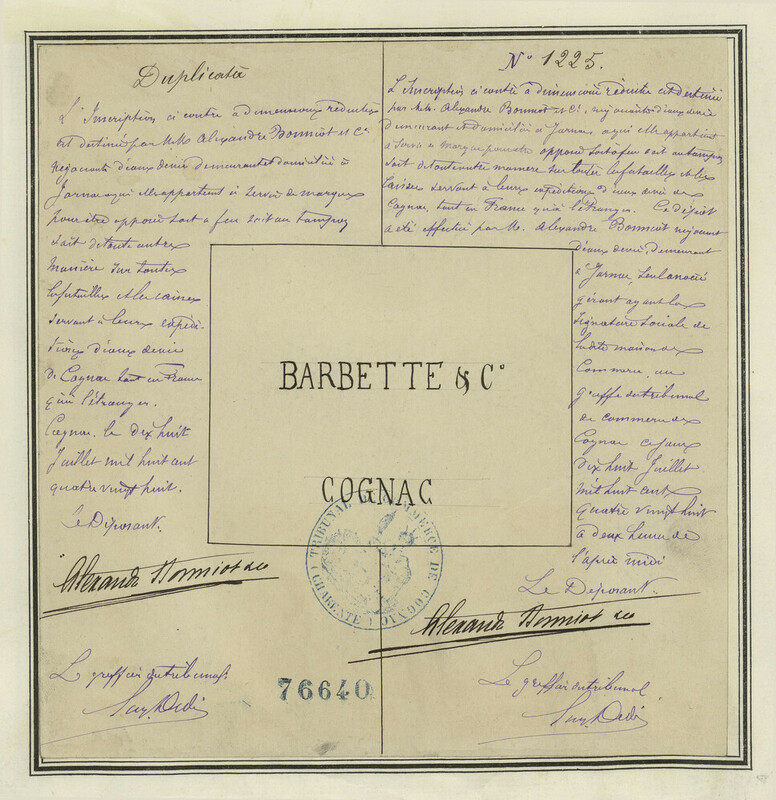 Duplicata
L'Inscription ci contre a demeseure réduite
est destiné par MM. Alexandre Bonniot et Cie
négociants d'eaux de vie demeurant et domiciliés à
Jarnac a qui elle appartient à servir de marque
pour être apposée soit a feu soit au tampon
soit de toute autre
manière sur toutes
les futailles et les caisses
servant à leurs expédi-
tions d'eaux de vie
de Cognac tant en France
qu'à l'étranger.
Cognac, le dix huit
Juillet mil huit cent
quatre vingt huit.
Le Déposant.
Alexandre Bonniot & Co
Le greffier du tribunal
N° 1225.
L'Inscription ci contre à demeseure réduite est destinée
par MM. Alexandre Bonniot et Cie, négociants d'eaux de vie
demeurant et domiciliés à Jarnac a qui elle appartient
à servir de marque pour être apposée soit à feu soit au tampon
soit de toute autre manière sur toutes les futailles et les
caisses servant à leurs expéditions d'eaux de vie de
Cognac, tant en France qu'à l'étranger. Ce dépôt
a été effectué par M. Alexandre Bonniot négociant
d'eaux de vie, demeurant
à Jarnac, seul associé
gérant ayant la
signature sociale de
la dite maison de
Commerce, au
greffe du tribunal
de commerce de
Cognac ce jour
dix huit Juillet
mil huit cent
quatre vingt huit
à deux heures de
l'après midi
Le Déposant.
Alexandre Bonniot & Co
Le greffier du tribunal
BARBETTE & Co
COGNAC
TRIBUNAL DE COMMERCE DE COGNAC
(CHARENTE)
76640